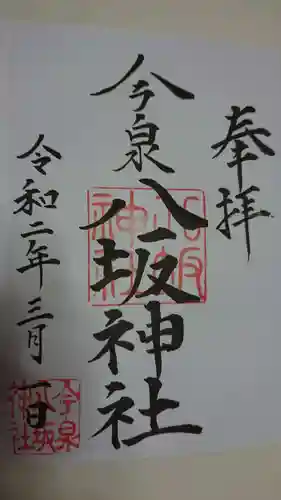 奉拝
今泉
八坂神社
令和二年三月一日
八坂神社
今泉八坂神社